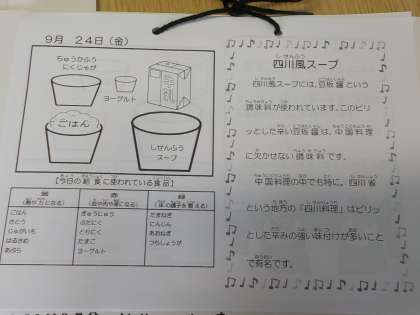 9月 24日(金)
ちゅうかふう
にくじゃが
ヨーグルト
ごはん
しせんふう
スープ
【今日の給食に使われている食品】
黄
(熱や力になる)
赤
(血や肉や骨になる)
緑
(体の調子を整える)
ごはん
さとう
じゃがいも
はるさめ
あぶら
ぎゅうにゅう
ぶたにく
とりにく
たまご
ヨーグルト
たまねぎ
にんじん
あおねぎ
つちしょうが
四川風スープ
四川風スープには、豆板醤という
調味料が使われています。このピリ
ッとした辛い豆板醤は、中国料理
に欠かせない調味料です。
中国料理の中でも特に、四川省
という地方の「四川料理」はピリッ
とした辛みの強い味付けが多いこと
で有名です。